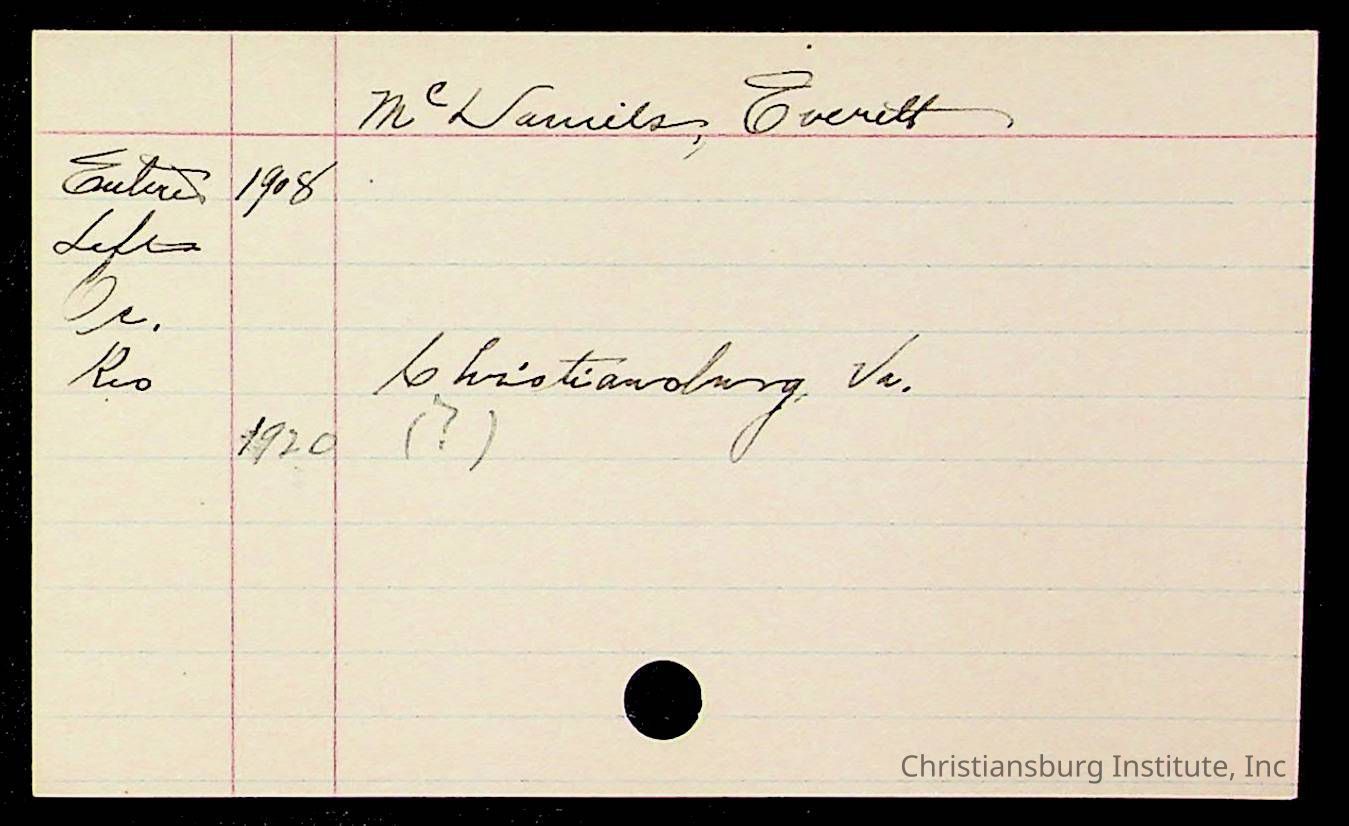 McDaniels, Everett
Entered 1908
Left
Oc.
Res Christiansburg, Va.
1920 (?)
Christiansburg Institute, Inc